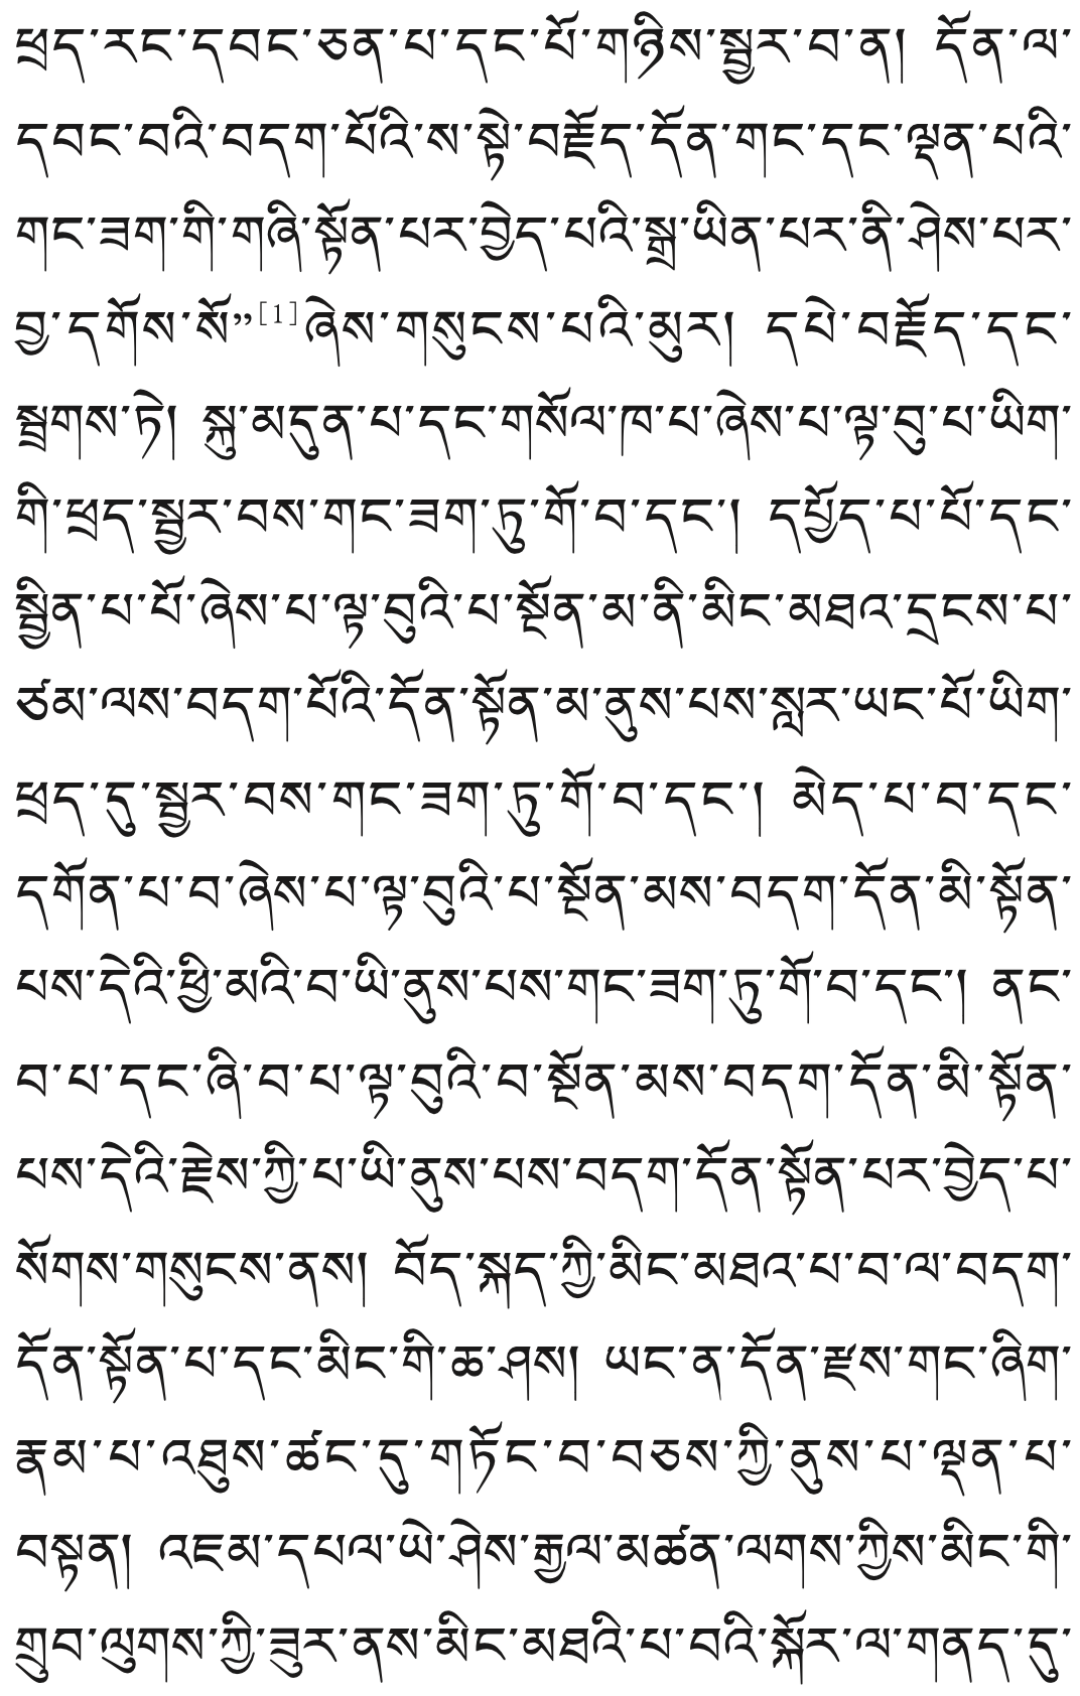 ཕྲད་རང་དབང་ཅན་པ་དང་པོ་གཉིས་སྦྱར་བ་ན། དོན་ལ་
དབང་བའི་བདག་པོའི་ས་སྟེ་བརྗོད་དོན་གང་དང་ལྡན་པའི་
གང་ཟག་གི་གཞི་སྟོན་པར་བྱེད་པའི་སྒྲ་ཡིན་པར་ནི་ཤེས་པར་
བྱ་དགོས་སོ”[1]ཞེས་གསུངས་པའི་མུར། དཔེ་བརྗོད་དང་
སྦྲགས་ཏེ། སྐུ་མདུན་པ་དང་གསོལ་ཁ་པ་ཞེས་པ་ལྟ་བུ་པ་ཡིག་
གི་ཕྲད་སྦྱར་བས་གང་ཟག་ཏུ་གོ་བ་དང་། དཔྱོད་པ་པོ་དང་
སྦྱིན་པ་པོ་ཞེས་པ་ལྟ་བུའི་པ་སྔོན་མ་ནི་མིང་མཐའ་དྲངས་པ་
ཙམ་ལས་བདག་པོའི་དོན་སྟོན་མ་ནུས་པས་སླར་ཡང་པོ་ཡིག་
ཕྲད་དུ་སྦྱར་བས་གང་ཟག་ཏུ་གོ་བ་དང་། མེད་པ་བ་དང་
དགོན་པ་བ་ཞེས་པ་ལྟ་བུའི་པ་སྔོན་མས་བདག་དོན་མི་སྟོན་
པས་དེའི་ཕྱི་མའི་བ་ཡི་ནུས་པས་གང་ཟག་ཏུ་གོ་བ་དང་། ནང་
བ་པ་དང་ཞི་བ་པ་ལྟ་བུའི་བ་སྔོན་མས་བདག་དོན་མི་སྟོན་
པས་དེའི་རྗེས་ཀྱི་པ་ཡི་ནུས་པས་བདག་དོན་སྟོན་པར་བྱེད་པ་
སོགས་གསུངས་ནས། བོད་སྐད་ཀྱི་མིང་མཐའ་པ་བ་ལ་བདག་
དོན་སྟོན་པ་དང་མིང་གི་ཆ་ཤས། ཡང་ན་དོན་རྫས་གང་ཞིག་
རྣམ་པ་འཐུས་ཚང་དུ་གཏོང་བ་བཅས་ཀྱི་ནུས་པ་ལྡན་པ་
བསྟན། འཇམ་དཔལ་ཡེ་ཤེས་རྒྱལ་མཚན་ལགས་ཀྱིས་མིང་གི་
གྲུབ་ལུགས་ཀྱི་ཟུར་ནས་མིང་མཐའི་པ་བའི་སྐོར་ལ་གནད་དུ་